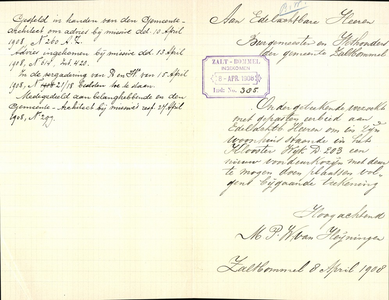 Gesteld in handen van den Gemeente-
architect om advies bij missive dd. 10 April
1908, N° 260 A.Z.
Advies ingekomen bij missive dd. 13 April
1908, N° 514. Ind. 420.
In de vergadering van B en W. van 15 April
1908, N° 21/18 besloten toe te staan.
Medegedeeld aan belanghebbende en den
Gemeente-Architect bij missive van 27 April
1908, N° 297.
Aan Edelachtbare Heeren
Burgemeester en Wethouders
der gemeente Zaltbommel
ZALT-BOMMEL
INGEKOMEN
8 - APR. 1908
Indr No. 305.
Ondergeteekende verzoekt
met gepasten eerbied aan
Edelachtb Heeren om in zijn
woonhuis staande in het
Klooster Wijk D 203 een
nieuw vondenkozijn met deur
te mogen doen plaatsen vol-
gens bijgaande teekening
Hoogachtend
M. P. W. van Heijningen
Zaltbommel 8 April 1908